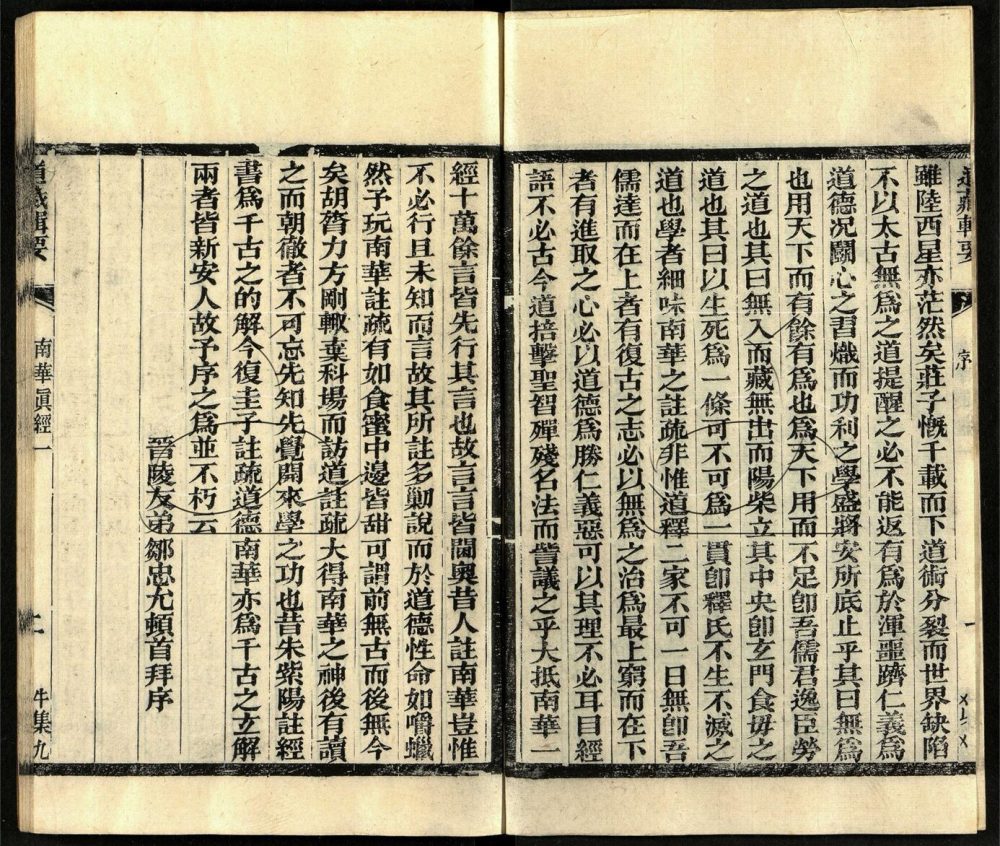 雖陸西星亦茫然矣莊子慨千載而下道術分裂而世界缺陷
不以太古無爲之道提醒之必不能返有爲於渾噩躋仁義爲
道德况鬭心之習熾而功利之學盛將安所底止乎其曰無爲
也用天下而有餘有爲也爲天下用而不足卽吾儒君逸臣勞
之道也其曰無入而藏無出而陽柴立其中央卽玄門食毋之
道也其曰以生死爲一條可不可爲一貫卽釋氏不生不滅之
道也學者細味南華之註疏非惟道釋二家不可一日無卽吾
儒達而在上者有復古之志必以無爲之治爲最上窮而在下
者有進取之心必以道德爲勝仁義惡可以其理不必耳目經
語不必古今道掊擊聖智殫殘名法而訾議之乎大抵南華一
道藏輯要
序
一
經十萬餘言皆先行其言也故言言皆閫奧昔人註南華豈惟
不必行且未知而言故其所註多勦說而於道德性命如嚼蠟
然予玩南華註疏有如食蜜中邊皆甜可謂前無古而後無今
矣胡膂力方剛輙棄科場而訪道註疏大得南華之神後有讀
之而朝徹者不可忘先知先覺開來學之功也昔朱紫陽註經
書爲千古之的解今復圭子註疏道德南華亦爲千古之立解
兩者皆新安人故予序之爲並不朽云
晉陵友弟鄒忠允頓首拜序
道藏輯要
南華眞經一
二
牛集九